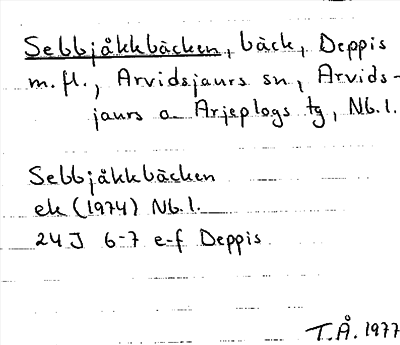 Sebbjåkkbäcken, bäck, Deppis
m.fl., Arvidsjaurs sn, Arvids-
jaurs a Arjeplogs tg, Nb.l.
Sebbjåkkbäcken
ek (1974) Nb.l.
24J 6-7 e-f Deppis
T.Å. 1977